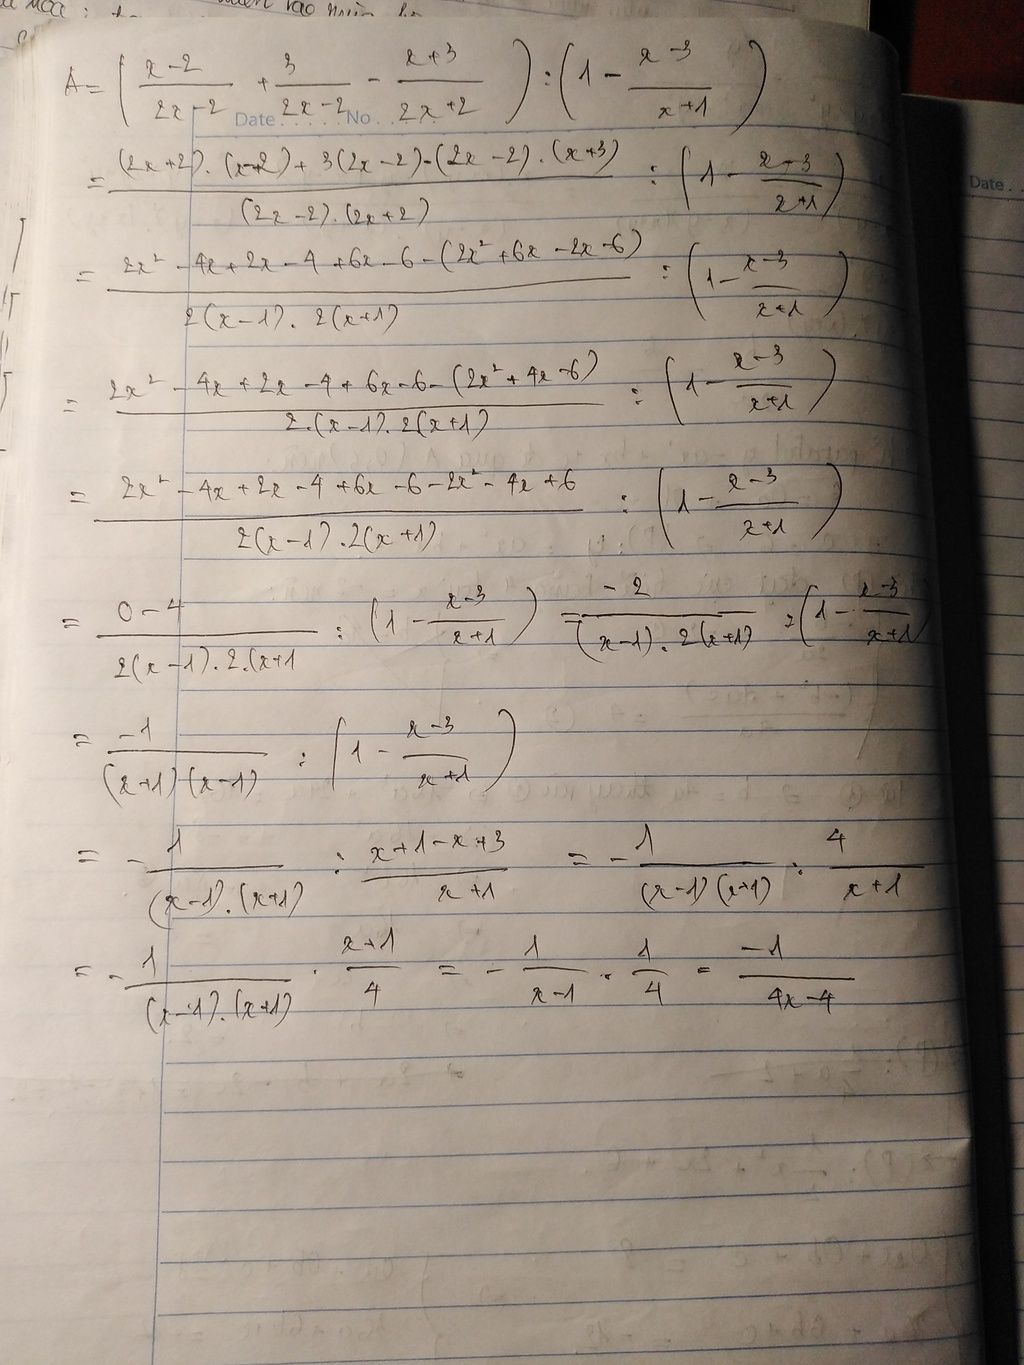 A = ( (x-2)/(2x-2) + 3/(2x-2) - (x+3)/(2x+2) ) : ( 1 - (x-3)/(x+1) )
Date . . . . . No . . .
= ((2x+2).(x-2)+3(2x-2)-(2x-2).(x+3))/((2x-2).(2x+2)) : ( 1 - (x-3)/(x+1) )
Date . .
= (2x² - 4x + 2x - 4 + 6x - 6 - (2x² + 6x - 2x - 6))/(2(x-1). 2(x+1)) : ( 1 - (x-3)/(x+1) )
= (2x² - 4x + 2x - 4 + 6x - 6 - (2x² + 4x - 6))/(2.(x-1). 2(x+1)) : ( 1 - (x-3)/(x+1) )
= (2x² - 4x + 2x - 4 + 6x - 6 - 2x² - 4x + 6)/(2(x-1).2(x+1)) : ( 1 - (x-3)/(x+1) )
= (0-4)/(2(x-1).2.(x+1) : ( 1 - (x-3)/(x+1) ) = (-2)/((x-1).2(x+1)) : ( 1 - (x-3)/(x+1) )
= (-1)/((x+1)(x-1)) : ( 1 - (x-3)/(x+1) )
= - 1/((x-1).(x+1)) : (x+1-x+3)/(x+1) = - 1/((x-1)(x+1)) : 4/(x+1)
= - 1/((x-1).(x+1)) . (x+1)/4 = - 1/(x-1) . 1/4 = (-1)/(4x-4)